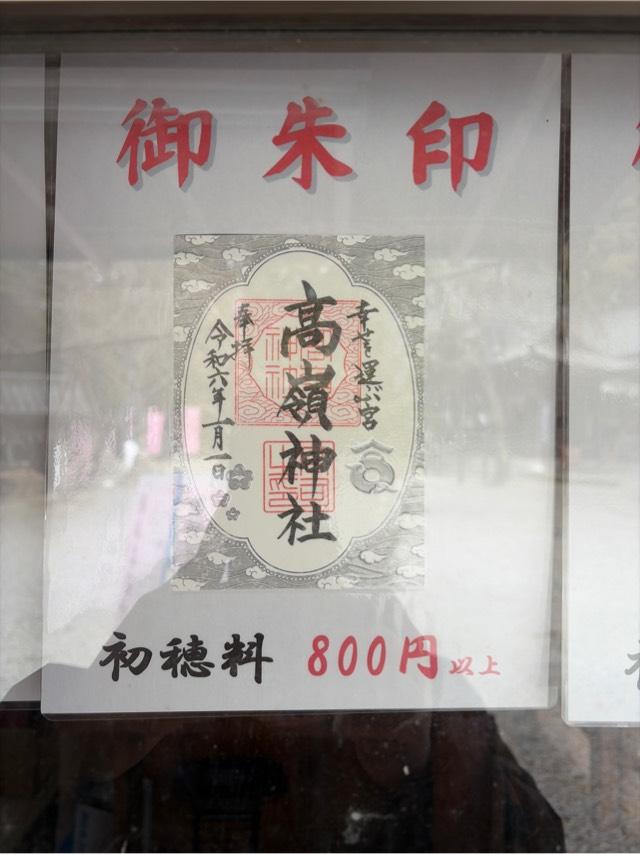 御朱印
幸せを運ぶ宮
高嶺神社
奉拝
令和六年一月一日
初穂料 800円以上